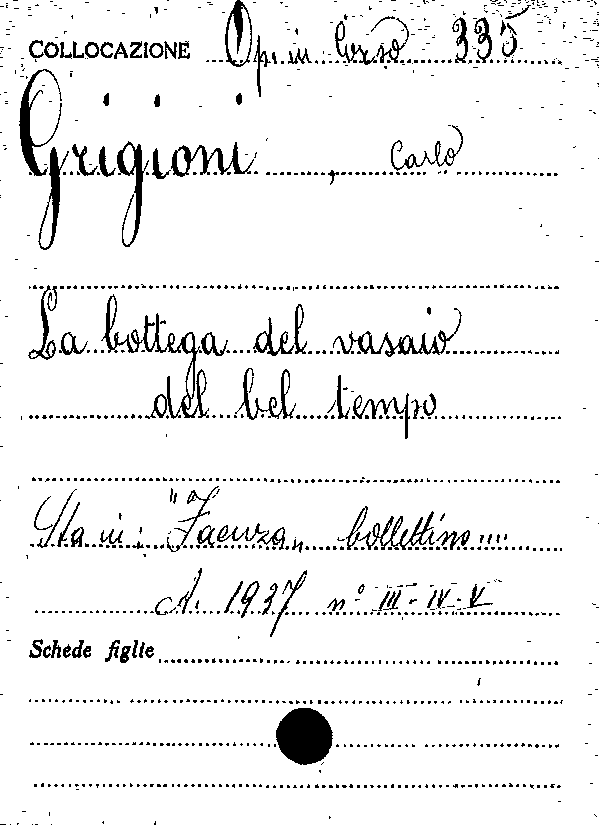 COLLOCAZIONE Op. in Corso 335
Grigioni, Carlo
La bottega del vasaio
del bel tempo
Sta in: "Faenza" bollettino....
A. 1937 n° III-IV-V
Schede figlie